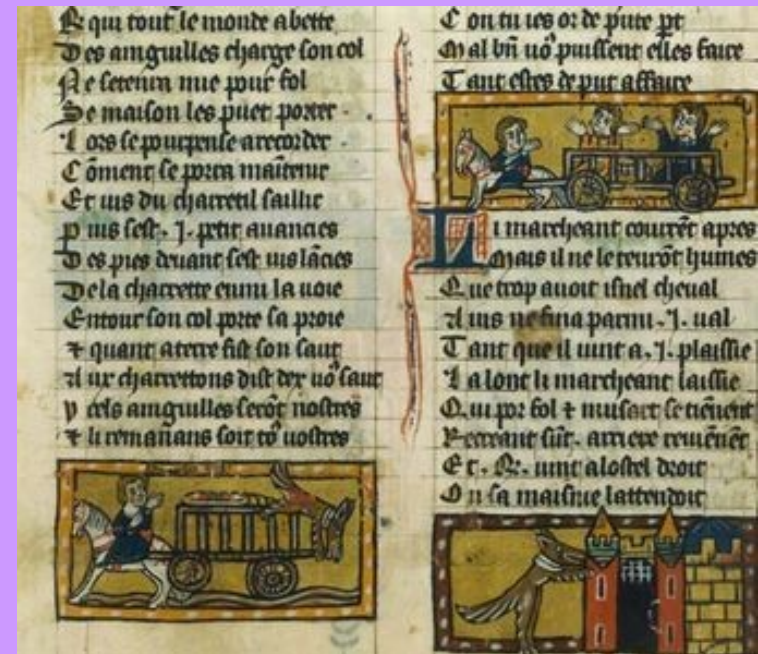 R qui tout le monde abette
D es amguilles charge son col
N e setenra mie pour fol
S e maison les puet porter .
L ors se pourpense a recorder
C õment se porra maĩtenir
E t uis du charretil saillir
p uis sest . J . petit auancies
D es pies deuant sest uis lãcies
D e la charrette enmi la uoie
E ntour son col porte sa proie
⁊ quant a terre fist son saut
A ux charrettons dist dex uo9 saut
y cels amguilles serõt nostres
⁊ li remañans soit to9 uostres
C on tu ies or de pute pt
M al bñ uo9 puissent elles faire
T ant estes de put affaire
L i marcheant courẽt apres
M ais il ne le tenrõt humes
Q ue trop auoit isnel cheual
A uis ne fina parmi . J . ual
T ant que il uint a . J . plaissie
L a lont li marcheant laissie
Q ui por fol ⁊ musart se tiẽnent
R ecreant sũt . arriere reuiẽnẽt
E t . R . uint a lostel droit
O u sa maisnie lattendoit